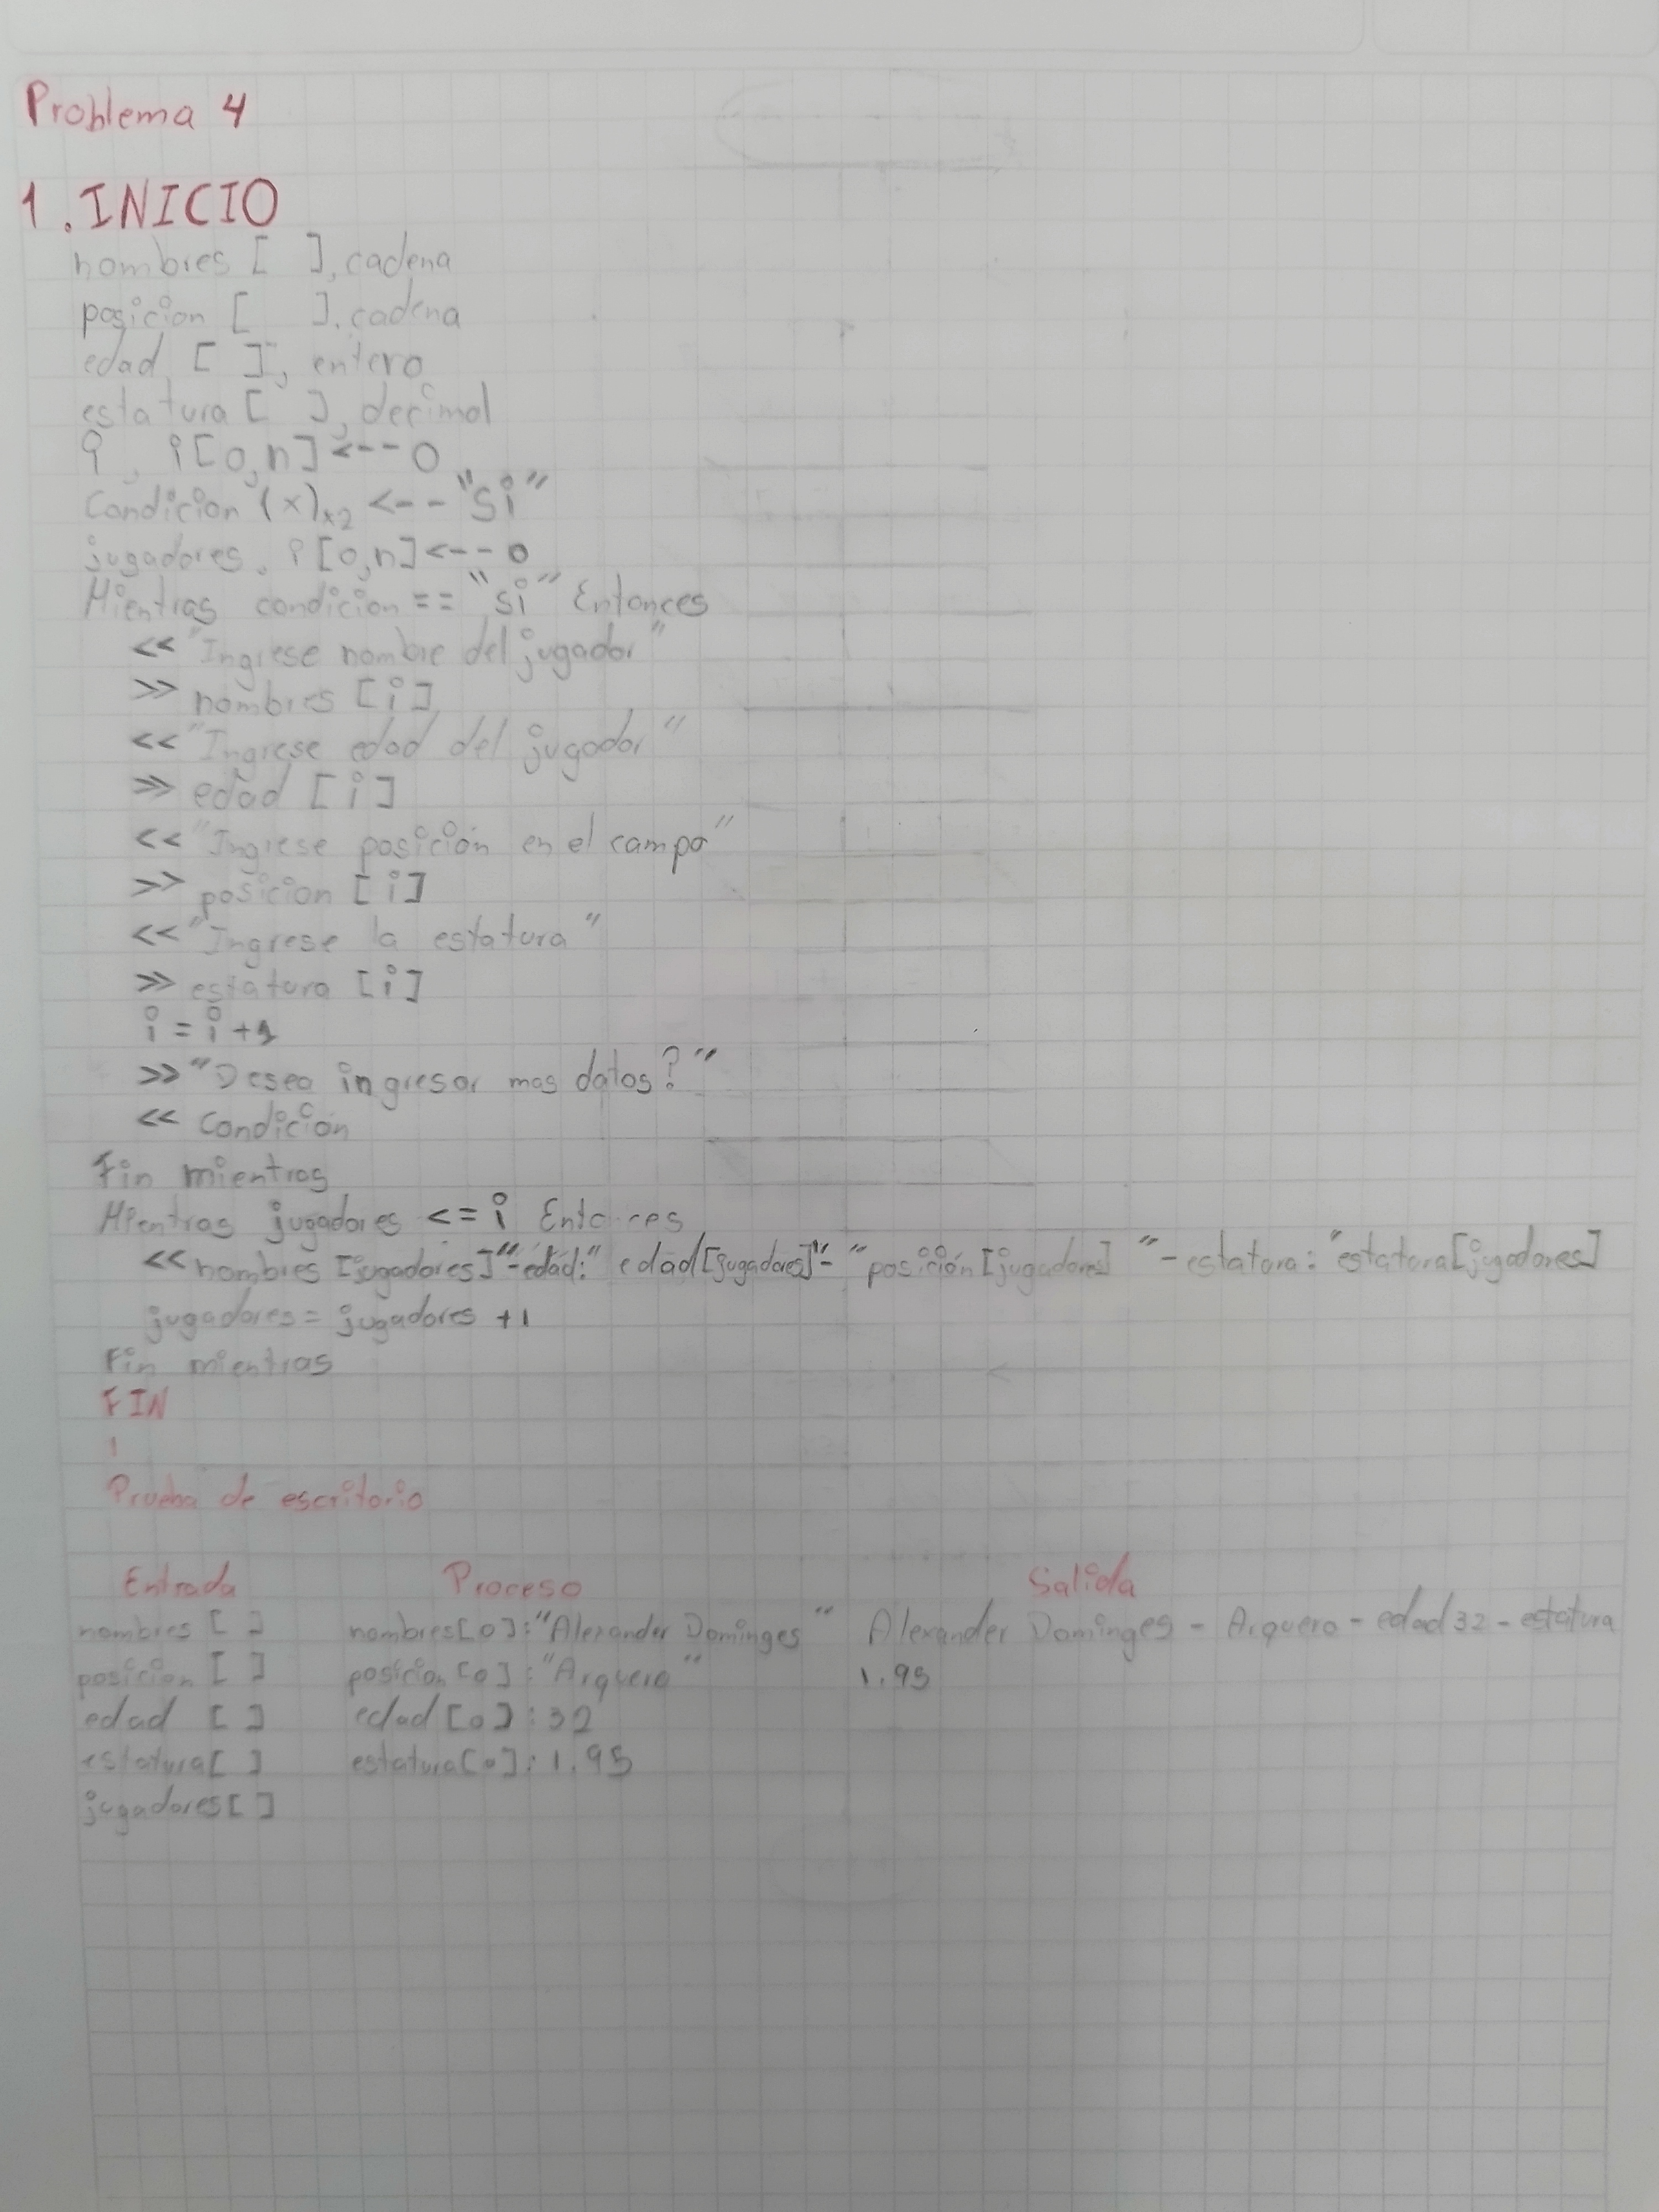 Problema 4
1. INICIO
nombres [ ], cadena
posicion [ ], cadena
edad [ ], entero
estatura [ ], decimal
i, i[0,n] <-- 0
Condicion (x)x2 <-- "Si"
jugadores, i[0,n] <-- 0
Mientras condicion == "si" Entonces
<< "Ingrese nombre del jugador"
>> nombres [i]
<< "Ingrese edad del jugador"
>> edad [i]
<< "Ingrese posición en el campo"
>> posicion [i]
<< "Ingrese la estatura"
>> estatura [i]
i = i +1
>> "Desea ingresar mas datos?"
<< Condición
Fin mientras
Mientras jugadores <= i Entonces
<< nombres [jugadores] "-edad:" edad[jugadores] "-" posición [jugadores] "-estatura:" estatura[jugadores]
jugadores = jugadores +1
Fin mientras
FIN
Prueba de escritorio
Entrada Proceso Salida
nombres [ ] nombres[0]: "Alexander Dominges" Alexander Dominges - Arquero - edad 32 - estatura
posicion [ ] posicion [0] : "Arquero" 1.95
edad [ ] edad [0] : 32
estatura [ ] estatura[0]: 1.95
jugadores [ ]